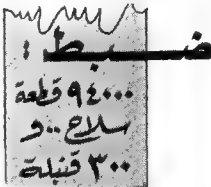 ضبط :
٩٤٠٠٠ قطعة
سلاح ..و
٣٠٠ قنبلة